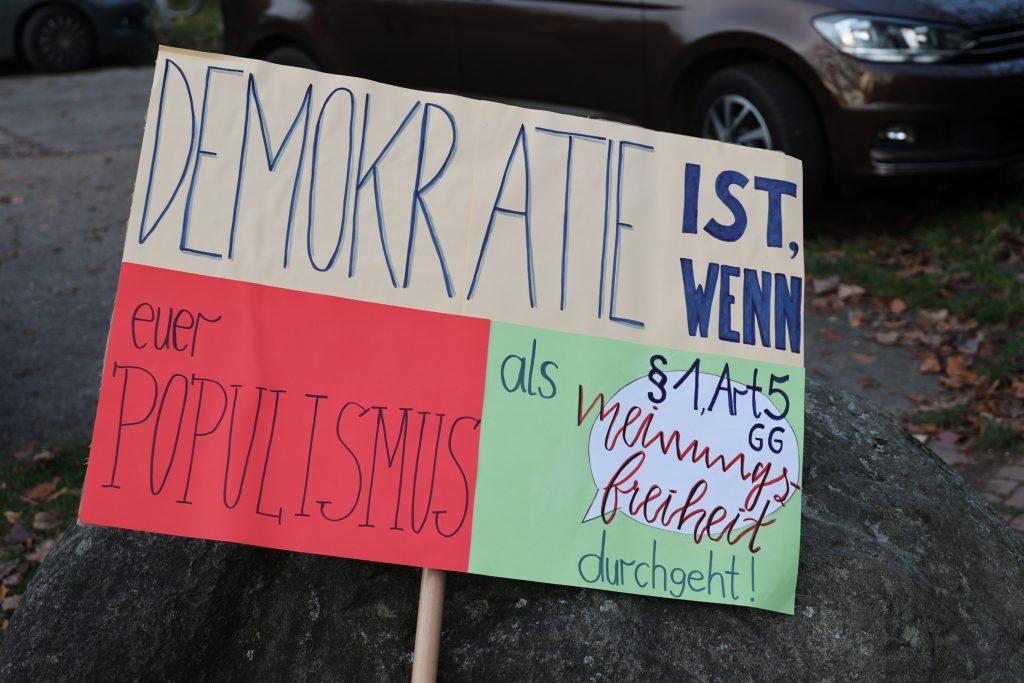 DEMOKRATIE IST,
WENN
euer
POPULISMUS
als §1, Art 5
GG
Meinungs-
freiheit
durchgeht!